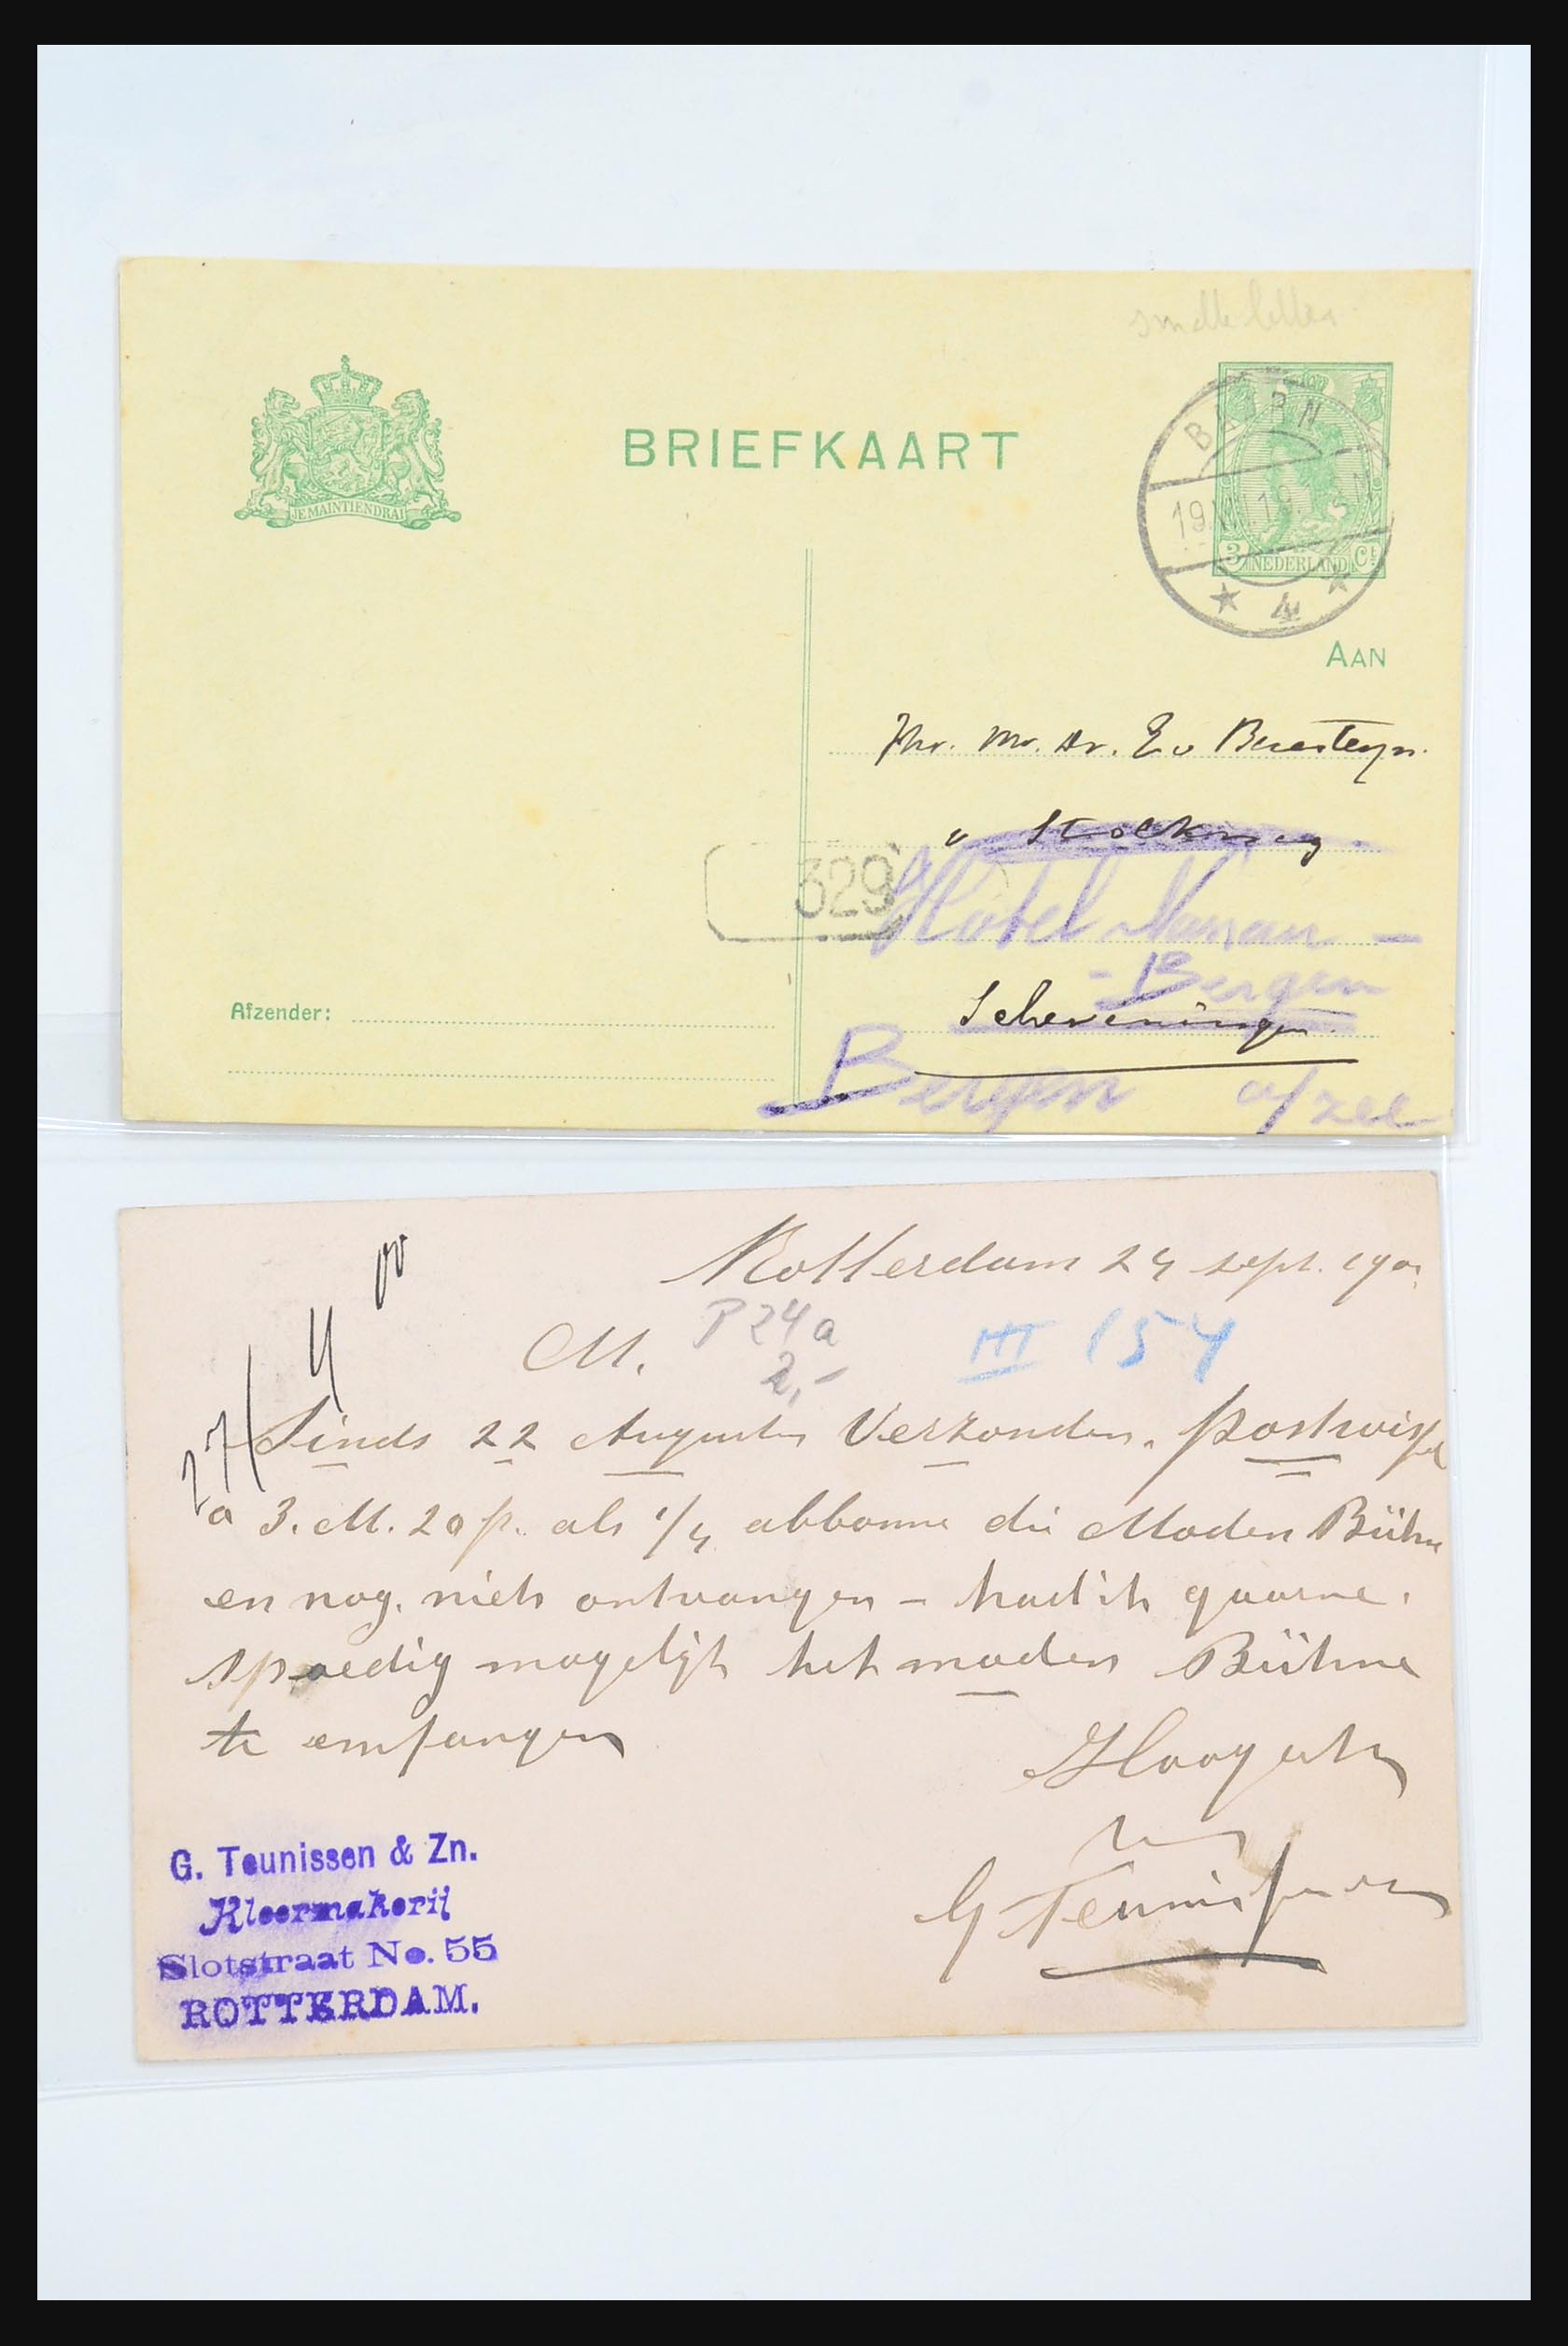 smalle letter
BRIEFKAART
JE MAINTIENDRAI
BAARN
19. 19. N
4
3 NEDERLAND Ct
AAN
Jhr. Mr. Dr. E v Beresteyn.
v Stolkweg
329
Hôtel Nassau -
- Bergen
Scheveningen.
Afzender:
Bergen a/zee
Rotterdam 24 sept. 190
M.
P 24a
2,-
III 154
27/4 00
Sinds 22 Augustus Verzonden. postwissel
a 3. M. 20 p. als 1/4 abbonne die Moden Bühne
en nog. niets ontvangen - had ik gaarne.
spoedig mogelijk het moden Bühne
te emfangen
Hoogacht
G Teunissen
G. Teunissen & Zn.
Kleermakerij
Slotstraat No. 55
ROTTERDAM.